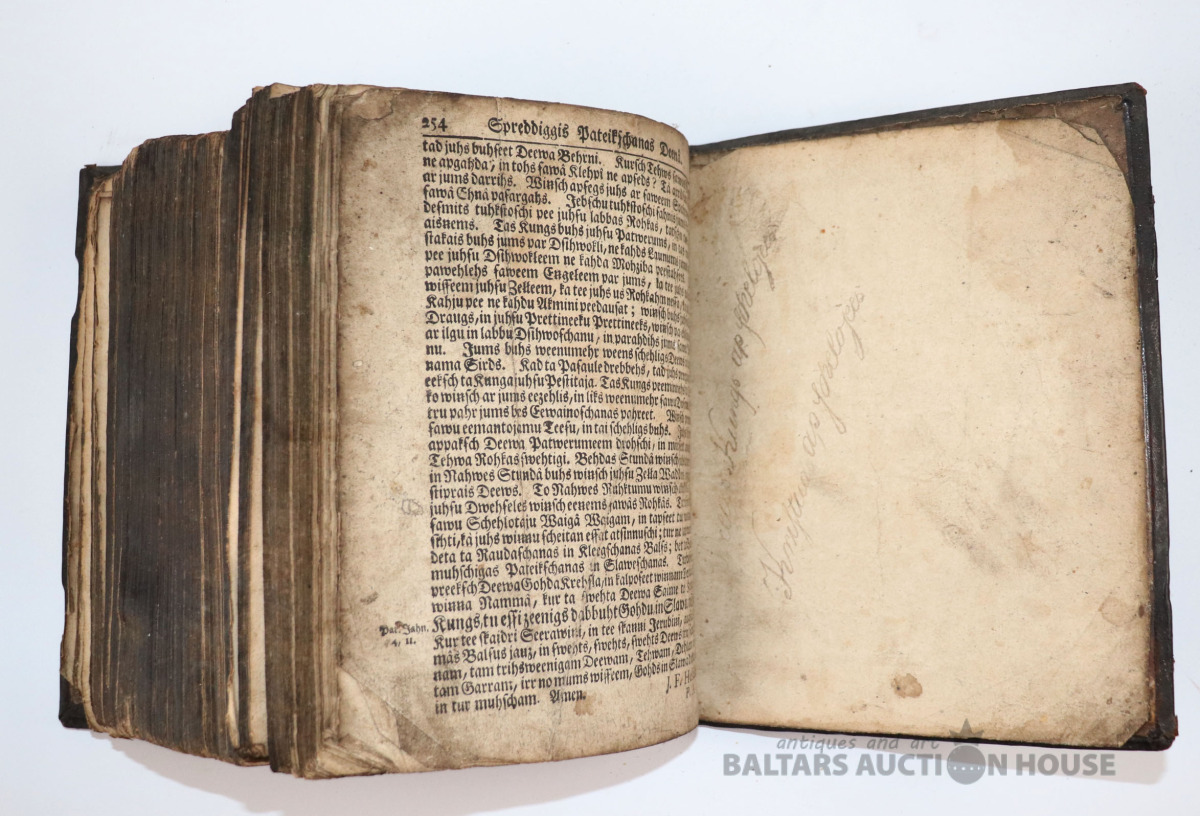 254 Spreddiggis Pateikschanas Deenâ.
tad juhs buhseet Deewa Behrni. Kursch Tehws
ne apgahda, in tohs sawâ Klehpi ne apseds? Tâ
ar jums darrihs. Winsch apsegs juhs ar saweem
sawâ Ehnâ pasargahs. Jebschu tuhkstoschi
desmits tuhkstoschi pee juhsu labbas Rohkas,
aisnems. Tas Kungs buhs juhsu Patwerums, in
stakais buhs jums par Dsihwokli, ne kahds Launums
pee juhsu Dsihwokleem ne kahda Mohziba
pawehlehs saweem Engeleem par jums, ka tee juhs
wisseem juhsu Zelleem, ka tee juhs us Rohkahm
Kahju pee ne kahdu Akmini peedausat; winsch buhs
Draugs, in juhsu Prettineeku Prettineeks, winsch
ar ilgu in labbu Dsihwoschanu, in parahdihs jums
nu. Jums buhs weenumehr weens schehligs Deews
nama Sirds. Kad ta Pasaule drebbehs, tad juhs
eeksch ta Kunga juhsu Pestitaja. Tas Kungs peeminnehs
ko winsch ar jums eezehlis, in liks weenumehr sawu
tru pahr jums bes Eewainoschanas pahreet. Winsch
sawu eemantojamu Teesu, in tai schehligs buhs.
appaksch Deewa Patwerumeem drohschi, in
Tehwa Rohkas swehtigi. Behdas Stundâ winsch
in Nahwes Stundâ buhs winsch juhsu Zella Waddons
stiprais Deews. To Nahwes Ruhktumu winsch
juhsu Dwehseles winsch eenems sawâs Rohkâs.
sawu Schehlotaju Waigâ Waigam, in tapseet
schti, kâ juhs winnu scheitan essat atsinnuschi; tur ne
deta ta Raudaschanas in Kleegschanas Balss; bet
muhschigas Pateikschanas in Slaweschanas.
preeksch Deewa Gohda Krehsla, in kalposeet winnam
winna Nammâ, kur ta swehta Deewa Saime
Kungs, tu essi zeenigs dabbuht Gohdu in Slawu
Par. Jahn.
4, 11.
Kur tee skaidri Seerawini, in tee skanni Jerubini,
mâs Balsus jauz, in swehts, swehts, swehts Deews
nam, tam trihsweenigam Deewam, Tehwam, Dehlam
tam Garram, irr no mums wisseem, Gohds in Slawa
in tur muhscham. Amen.
J. F.
P.
Kungs ap
Kristus ap
antiques and art
BALTARS AUCTION HOUSE